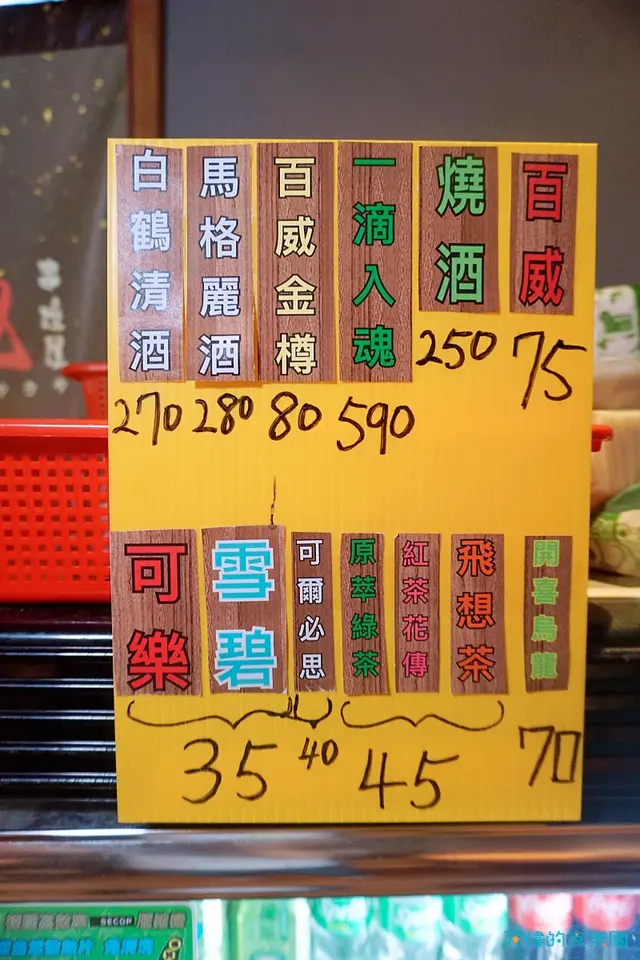 百威
75
燒酒
250
一滴入魂
590
百威金樽
80
馬格麗酒
280
白鶴清酒
270
可樂
雪碧
35
可爾必思
40
原萃綠茶
紅茶花傳
飛想茶
45
開喜烏龍
70
SECOP